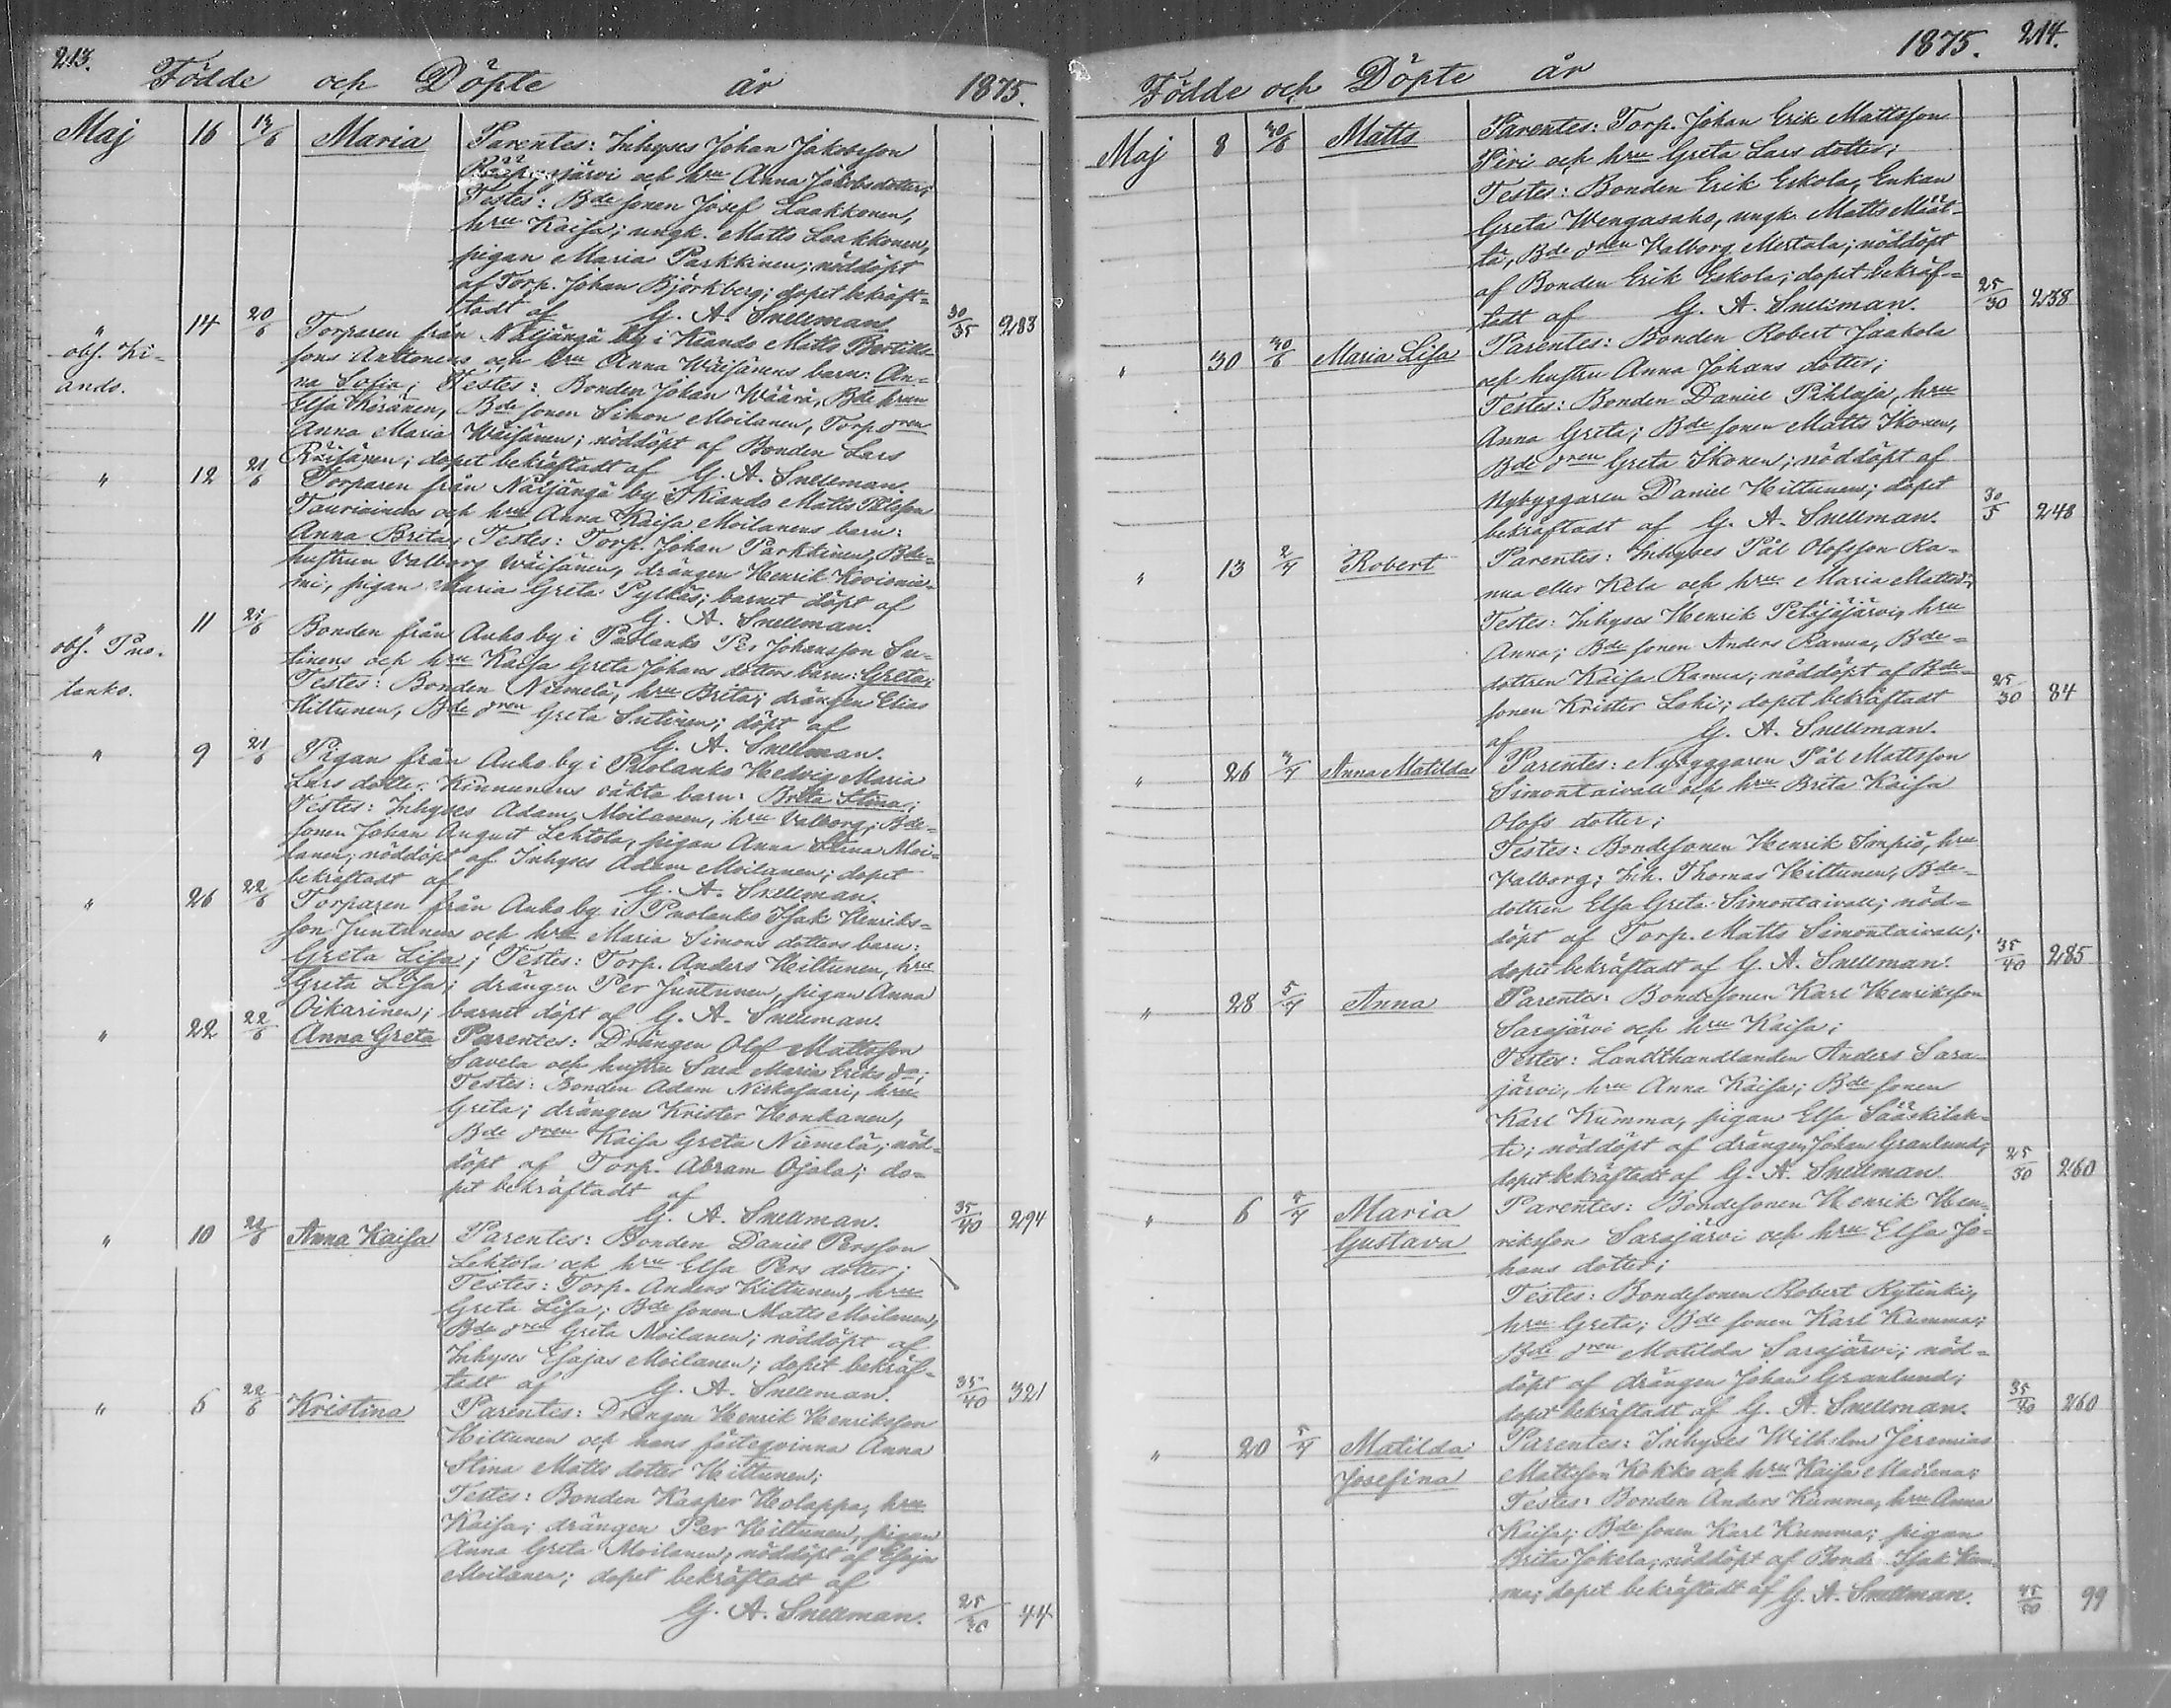 213.
Födde och Döpte år 1875.
Maj 16 13/6 Maria Parentes: Inhyses Johan Jakobsson
järvi och hru Anna Jakobsdotter;
Testes: Bde sonen Josef Laakkonen,
hru Kaisa; ungk. Matts Laakkonen,
pigan Maria Parkkinen; nöddöpt
af Torp. Johan Björkberg; dopet bekräft-
tadt af G. A. Snellman. 30/35 283
" 14 20/6 Torparen från Näljängä by i Kiando Matts Bertills-
obs. Ki- sons Anttonens och hru Anna Wäisänens barn: An-
ando. na Sofia; Testes: Bonden Johan Wäärä, Bde hrun
Elsa Keränen, Bde sonen Simon Moilanen, Torp dren
Anna Maria Wäisänen; nöddöpt af Bonden Lars
Räisänen; dopet bekräftadt af G. A. Snellman.
" 12 21/6 Torparen från Näljängä by i Kiando Matts Pålsson
Tauriainens och hru Anna Kaisa Moilanens barn:
Anna Brita; Testes: Torp. Johan Parkkinen, Bde-
hustrun Valborg Wäisänen, drängen Henrik
pigan Maria Greta Pylkes; barnet döpt af
G. A. Snellman.
" 11 21/6 Bonden från Auho by i Puolanko Per Johansson Su-
obs. Puo- tinens och hru Kaisa Greta Johans dotters barn: Greta;
lanko. Testes: Bonden Niemelä, hru Brita; drängen Elias
Hiltunen, Bde dren Greta Sutinen; döpt af
G. A. Snellman.
" 9 21/6 Pigan från Auho by i Puolanko Hedvig Maria
Lars dotter Kinnunens oäkta barn: Brita Stina;
Testes: Inhyses Adam Moilanen, hru Valborg; Bde-
sonen Johan August Lehtola, pigan Anna Stina Moi-
lanen; nöddöpt af Inhyses Adam Moilanen; dopet
bekräftadt af G. A. Snellman.
" 26 22/6 Torparen från Auho by i Puolanko Isak Henriks-
son Juntunens och hru Maria Simons dotters barn:
Greta Lisa; Testes: Torp. Anders Hiltunen, hru
Greta Lisa; drängen Per Juntunen, pigan Anna
Oikarinen; barnet döpt af G. A. Snellman.
" 22 22/6 Anna Greta Parentes: Drängen Olof Mattsson
Savela och hustru Sara Maria Eriks dr;
Testes: Bonden Adam Niskasaari, hru
Greta; drängen Krister Honkanen,
Bde dren Kaisa Greta Niemelä; nöd-
döpt af Torp. Abram Ojala; do-
pet bekräftadt af
G. A. Snellman. 35/40 294
" 10 22/6 Anna Kaisa Parentes: Bonden Daniel Persson
Lehtola och hru Elsa Pers dotter;
Testes: Torp. Anders Hiltunen, hru
Greta Lisa; Bde sonen Matts Moilanen,
Bde dren Greta Moilanen; nöddöpt af
Inhyses Esajas Moilanen; dopet bekräf-
tadt af G. A. Snellman. 35/40 321
" 6 22/6 Kristina Parentes: Drängen Henrik Henriksson
Hiltunen och hans fästeqvinna Anna
Stina Matts dotter Hiltunen;
Testes: Bonden Kasper Holappa, hru
Kaisa; drängen Per Hiltunen, pigan
Anna Greta Moilanen, nöddöpt af Esajas
Moilanen; dopet bekräftadt af
G. A. Snellman. 25/30 44
214.
Födde och Döpte år 1875.
Maj 8 30/6 Matts Parentes: Torp. Johan Erik Mattsson
Piri och hru Greta Lars dotter;
Testes: Bonden Erik Eskola, Enkan
Greta Wengasaho, ungk. Matts Määt-
tä, Bde dren Valborg Mertala; nöddöpt
af Bonden Erik Eskola; dopet bekräf-
tadt af G. A. Snellman. 25/30 238
" 30 30/6 Maria Lisa Parentes: Bonden Robert Jaakola
och hustru Anna Johans dotter;
Testes: Bonden Daniel Pihlaja, hru
Anna Greta; Bde sonen Matts Ikonen,
Bde dren Greta Ikonen; nöddöpt af
Nybyggaren Daniel Hiltunen; dopet
bekräftadt af G. A. Snellman. 30/5 248
" 13 2/7 Robert Parentes: Inhyses Pål Olofsson Ra-
nua eller Kela och hru Maria Mattsdr;
Testes: Inhyses Henrik Petäjäjärvi, hru
Anna; Bde sonen Anders Ranua, Bde-
dottren Kaisa Ranua; nöddöpt af Bde-
sonen Krister Lohi; dopet bekräftadt
af G. A. Snellman. 25/30 84
" 26 4/7 Anna Matilda Parentes: Nybyggaren Pål Mattsson
Simontaival och hru Brita Kaisa
Olofs dotter;
Testes: Bondesonen Henrik Simpiö, hru
Valborg; Inh. Thomas Hiltunen, Bde-
dottren Elsa Greta Simontaival; nöd-
döpt af Torp. Matts Simontaival;
dopet bekräftadt af G. A. Snellman. 35/40 285
" 28 5/7 Anna Parentes: Bondesonen Karl Henriksson
Sarajärvi och hru Kaisa;
Testes: Landthandlanden Anders Sara-
järvi, hru Anna Kaisa; Bde sonen
Karl Kumma, pigan Elsa Sääskilah-
ti; nöddöpt af drängen Johan Granlund;
dopet bekräftadt af G. A. Snellman. 25/30 260
" 6 5/7 Maria Parentes: Bondesonen Henrik Hen-
Gustava riksson Sarajärvi och hru Elsa Jo-
hans dotter;
Testes: Bondesonen Robert Kytinki,
hru Greta; Bde sonen Karl Kumma;
Bde dren Matilda Sarajärvi; nöd-
döpt af drängen Johan Granlund;
dopet bekräftadt af G. A. Snellman. 35/40 260
" 20 5/7 Matilda Parentes: Inhyses Wilhelm Jeremias
Josefina Mattsson Kokko och hru Kaisa Madlena;
Testes: Bonden Anders Kumma, hru Anna
Kaisa; Bde sonen Karl Kumma; pigan
Brita Jokela; nöddöpt af Bonde Isak Kum-
ma; dopet bekräftadt af G. A. Snellman. 45/50 99